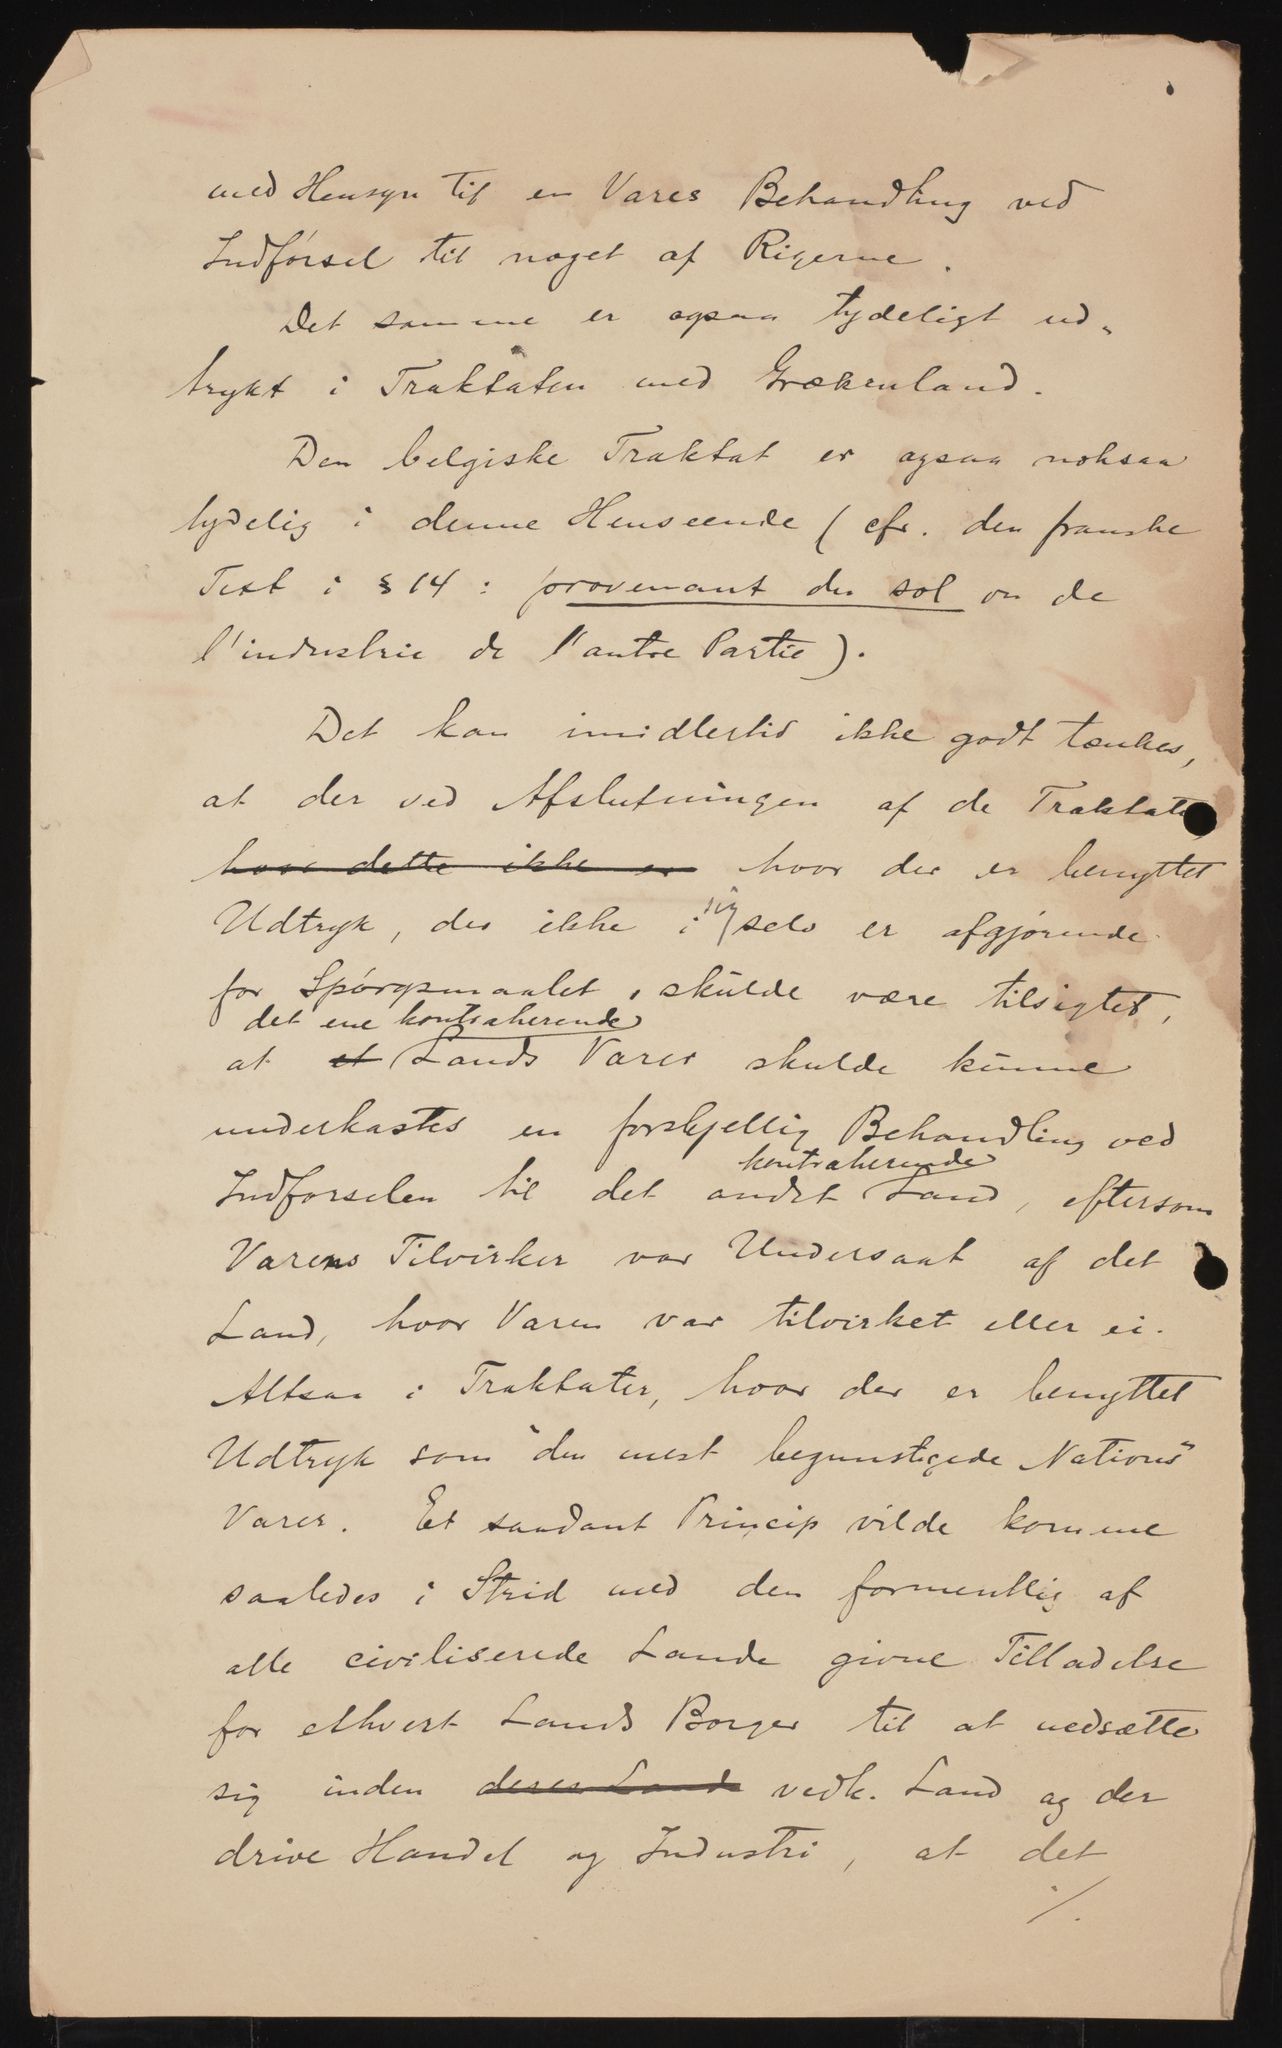 med Hensyn til en Vares Behandling ved
Indførsel til noget af Rigerne.
Det samme er ogsaa tydeligt ud„
trykt i Traktaten med Grækenland.
Den belgiske Traktat er ogsaa noksaa
tydelig i denne Henseende (cfr. den franske
Text i § 14: provenant du sol ou de
l'industrie de l'autre Partie).
Det kan imidlertid ikke godt tænkes,
at der ved Afslutningen af de Traktater
hvor dette ikke er hvor der er benyttet
Udtryk, der ikke i sig selv er afgjørende
for Spørgsmaalet, skulde være tilsigtet,
det ene kontraherende
at et Lands Varer skulde kunne
underkastes en forskjellig Behandling ved
kontraherende
Indførselen til det andet Land, eftersom
Varens Tilvirker var Undersaat af det
Land, hvor Varen var tilvirket eller ei.
Altsaa i Traktater, hvor der er benyttet
Udtryk som "den mest begunstigede Nations"
Varer. Et saadant Princip vilde komme
saaledes i Strid med den formentlig af
alle civiliserede Lande givne Tilladelse
for ethvert Lands Borger til at nedsætte
sig inden deres Land vedk. Land og der
drive Handel og Industri, at det
./.